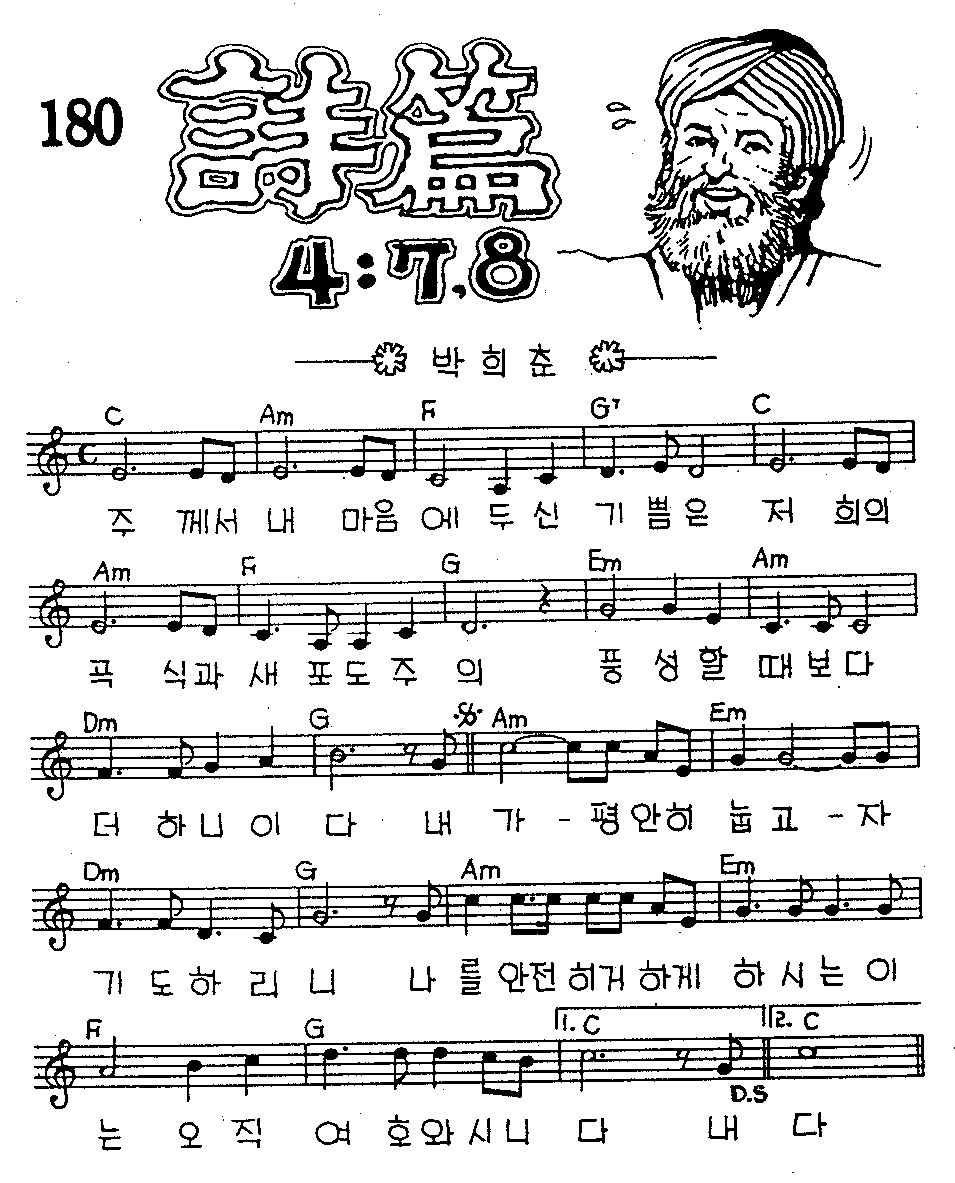 180
詩篇
4:7,8
박희춘
C Am F G7 C
주 께서 내 마음에 두신 기쁨은 저 희의
Am F G Em Am
곡 식과 새 포도주 의 풍 성할 때보다
Dm G Am Em
더 하니이 다 내 가 - 평안히 눕고 - 자
Dm G Am Em
기 도하 리 니 나 를 안전히거하게 하 시는 이
F G 1. C 2. C
D.S
는 오 직 여 호와시니 다 내 다